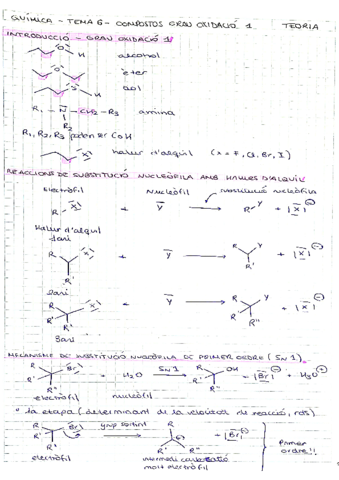 QUÍMICA - TEMA 6 - COMPOSTOS GRAU OXIDACIÓ 1 TEORIA
INTRODUCCIÓ - GRAU OXIDACIÓ 1
O H alcohol
O èter
R1 - N - CH2 - R3 amina
R2
R1, R2, R3 poden ser C o H
X halur d'alquil (x = F, Cl, Br, I)
REACCIONS DE SUBSTITUCIÓ NUCLEÒFILA AMB HALURS D'ALQUIL
Electròfil Nucleòfil nucleòfila
R X + Y → R Y + |X|⊖
Halur d'alquil
R X + Y → R Y + |X|⊖
R' R'
R X + Y → R Y + |X|⊖
R' R'' R' R''
MECANISME DE SUBSTITUCIÓ NUCLEÒFILA DE PRIMER ORDRE (SN1)
R Br + H2O SN1 → R OH + |Br|⊖ + H3O⊕
R' R'' R' R''
electròfil nucleòfil
1a etapa (determinant de la velocitat de reacció, rds)
R Br grup sortint → R + |Br|⊖ Primer
R' R'' R' R'' ordre!!
electròfil intermedi carbocatió
molt electròfil